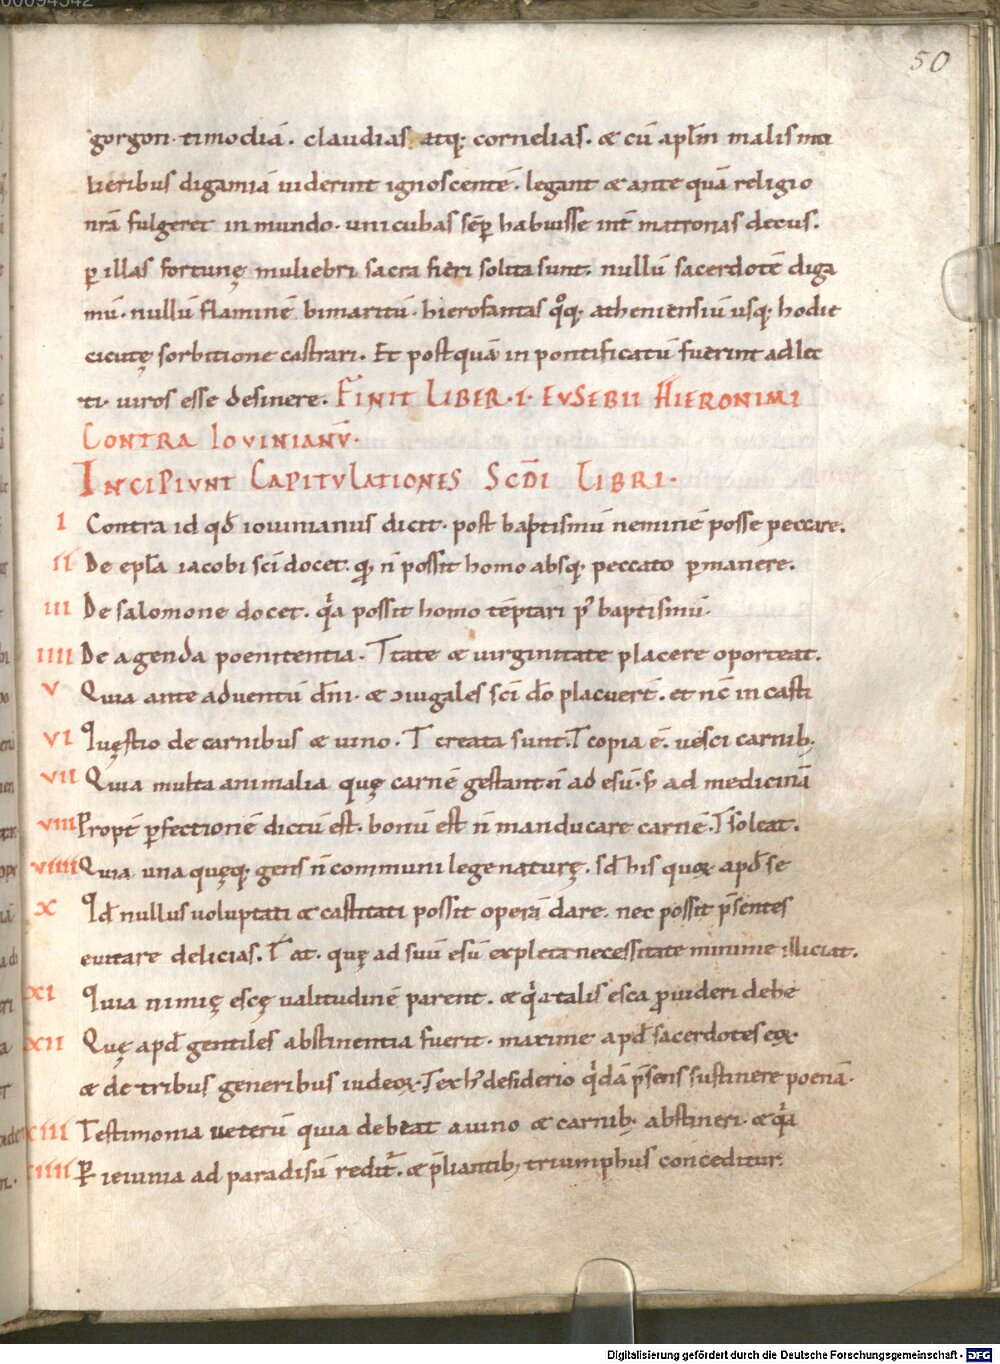 50
gorgon· timodiā. claudias atq; cornelias. & cū aplīm malis mu
lieribus digamiā uiderint ignoscentē. legant & ante quā religio
nrā fulgeret in mundo. unicubas sēp habuisse int̄ matronas decus.
p illas fortunę muliebri sacra fieri solita sunt. nullū sacerdotē diga
mū. nullū flaminē bimaritū. hierofantas qoq; atheniensiū usq; hodie
cicutę sorbitione castrari. Et postquā in pontificatū fuerint adlec
ti. uiros esse desinere. FINIT LIBER·I· EVSEBII HIERONIMI
CONTRA IOVINIANV̄·
INCIPIVNT CAPITVLATIONES SCD̄I LIBRI·
I Contra id qd̄ iouinianus dicit. post baptismū neminē posse peccare.
II De epl̄a iacobi sc̄i docet. q, n̄ possit homo absq; peccato pmanere.
III De salomone docet. qa possit homo tēptari p' baptismū.
IIII De agenda poenitentia. tate & uirginitate placere oporteat.
V Quia ante aduentū dn̄i. & ɔiugales sc̄i dō placuert̄. et nc̄ in casti
VI Quęstio de carnibus & uino. creata sunt. copia ē. uesci carnib;
VII Quia multa animalia quę carnē gestant n̄ ad esū. s; ad medicinā
VIII Propt̄ pfectionē dictū est. bonū est n̄ manducare carnē. soleat.
VIIII Quia una quęq; gens n̄ communi lege naturę. sd̄ his quoꝝ apd̄ se
X Qd̄ nullus uoluptati & castitati possit operā dare. nec possit p̄sentes
euitare delicias. at. quę ad suū esū expleta necessitate minime illiciat.
XI Quia nimię escę ualitudinē parent. & qa talis esca puideri debe
XII Quę apd̄ gentiles abstinentia fuerit. maxime apd̄ sacerdotes eoꝝ
& de tribus generibus iudeoꝝ. ex h' desiderio qdā p̄sens sustinere poenā.
XIII Testimonia ueterū quia debeat a uino & carnib; abstineri. & qa
XIIII P ieiunia ad paradisū redit. & p̄liantib; triumphus conceditur.
Digitalisierung gefördert durch die Deutsche Forschungsgemeinschaft - DFG